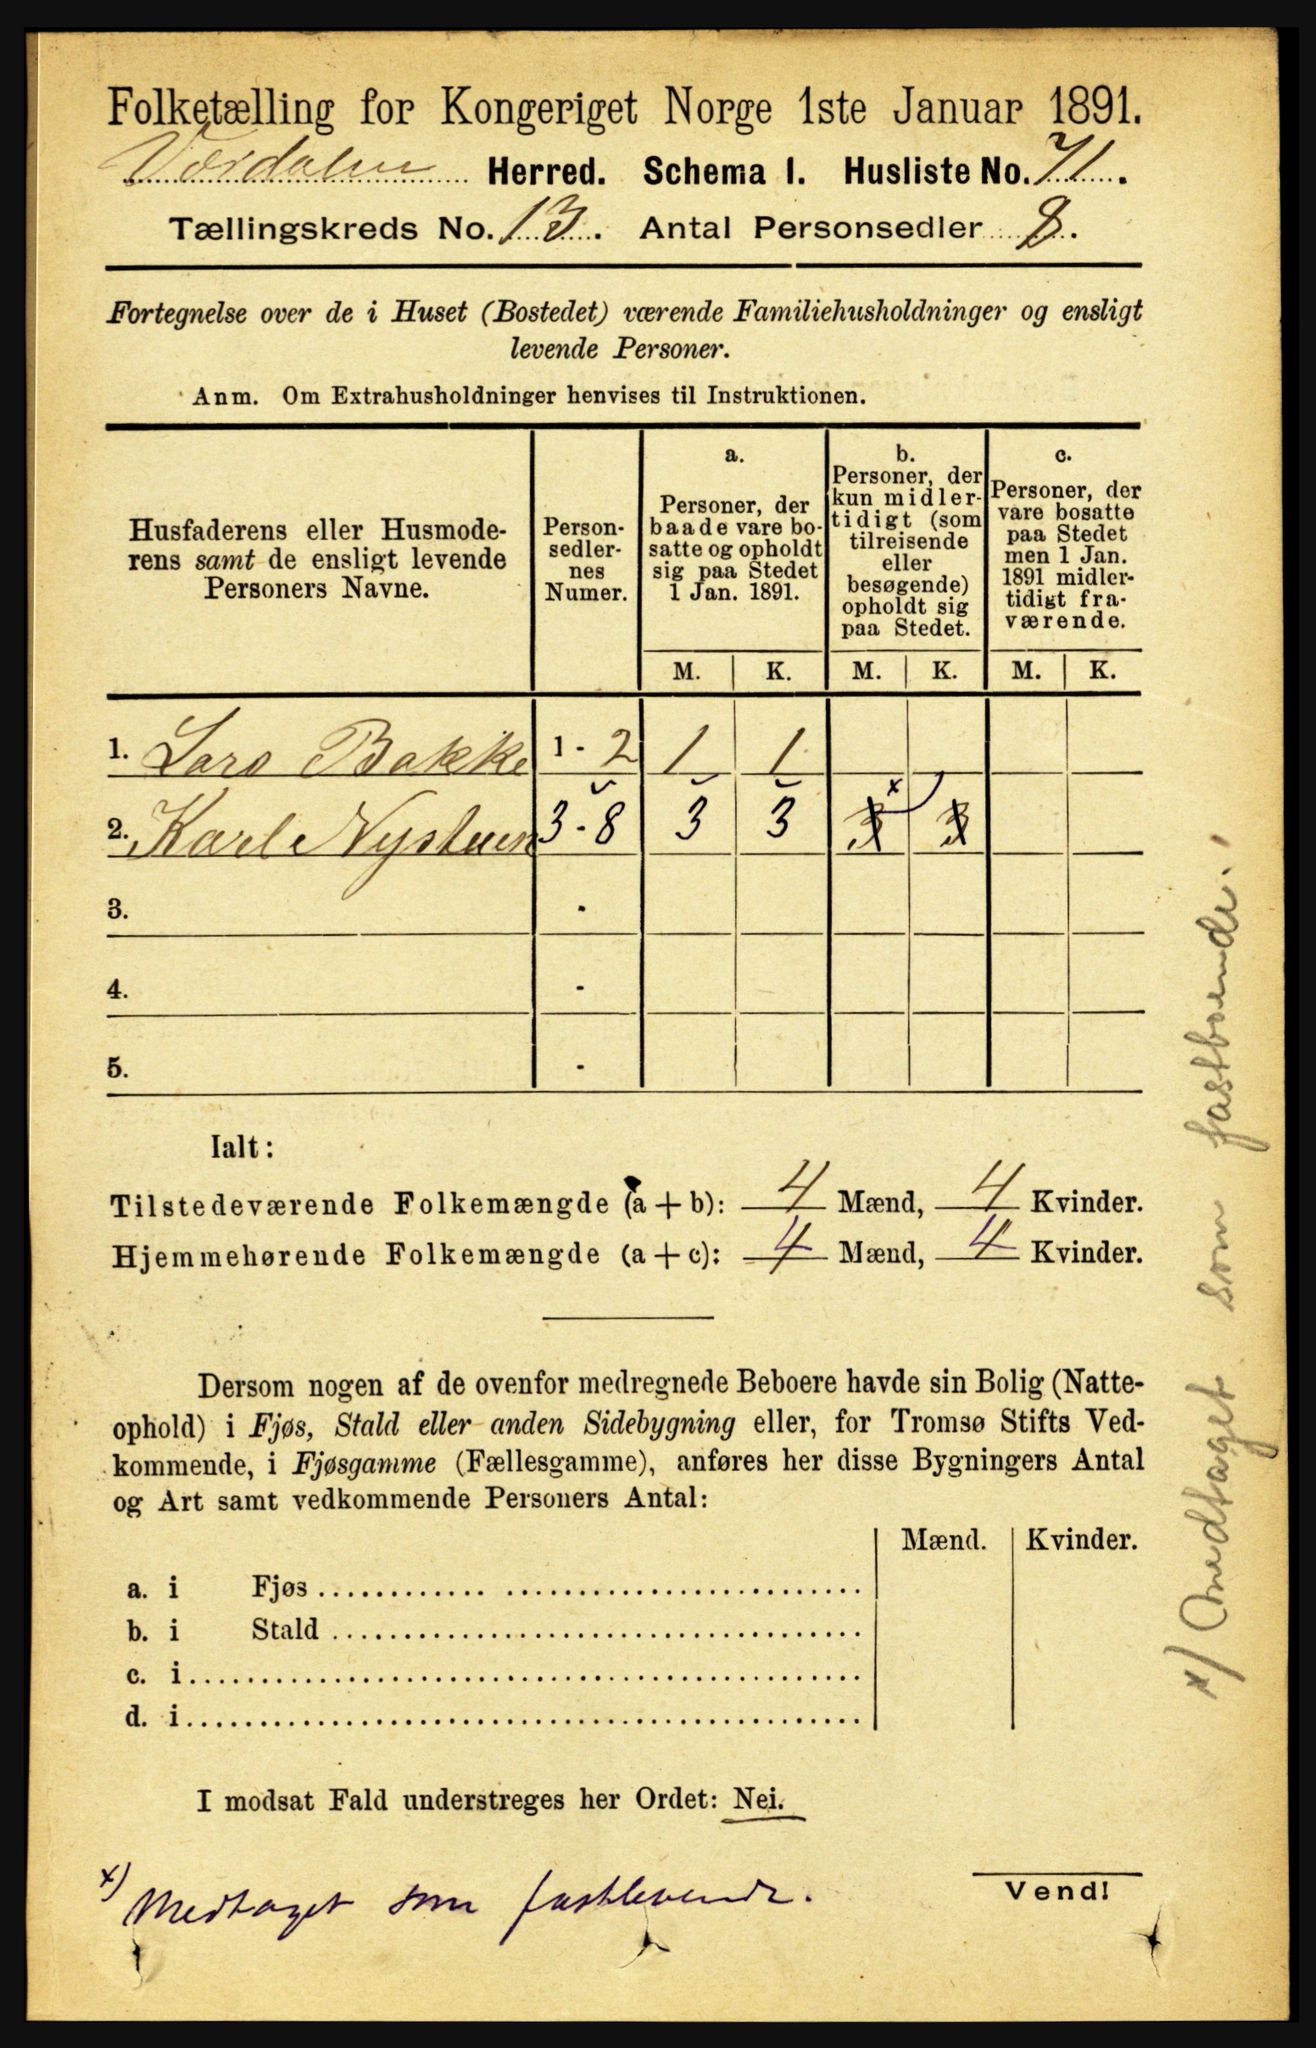 Folketælling for Kongeriget Norge 1ste Januar 1891.
Værdalen Herred. Schema I. Husliste No. 71.
Tællingskreds No. 13. Antal Personsedler 8.
Fortegnelse over de i Huset (Bostedet) værende Familiehusholdninger og ensligt
levende Personer.
Anm. Om Extrahusholdninger henvises til Instruktionen.
Husfaderens eller Husmode-
rens samt de ensligt levende
Personers Navne.
Person-
sedler-
nes
Numer.
a.
Personer, der
baade vare bo-
satte og opholdt
sig paa Stedet
1 Jan. 1891.
b.
Personer, der
kun midler-
tidigt (som
tilreisende
eller
besøgende)
opholdt sig
paa Stedet.
c.
Personer, der
vare bosatte
paa Stedet
men 1 Jan.
1891 midler-
tidigt fra-
værende.
M. K. M. K. M. K.
1. Lars Bakke 1 - 2 1 1
2. Karl Nystuen 3 - 8 3 3 x 3 3
3. -
4. -
5. -
Ialt:
Tilstedeværende Folkemængde (a + b): 4 Mænd, 4 Kvinder.
Hjemmehørende Folkemængde (a + c): 4 Mænd, 4 Kvinder.
Dersom nogen af de ovenfor medregnede Beboere havde sin Bolig (Natte-
ophold) i Fjøs, Stald eller anden Sidebygning eller, for Tromsø Stifts Ved-
kommende, i Fjøsgamme (Fællesgamme), anføres her disse Bygningers Antal
og Art samt vedkommende Personers Antal:
Mænd. Kvinder.
a. i Fjøs
b. i Stald
c. i
d. i
I modsat Fald understreges her Ordet: Nei.
x) Medtaget som fastlevende.
Vend!
x) Medtaget som fastboende.